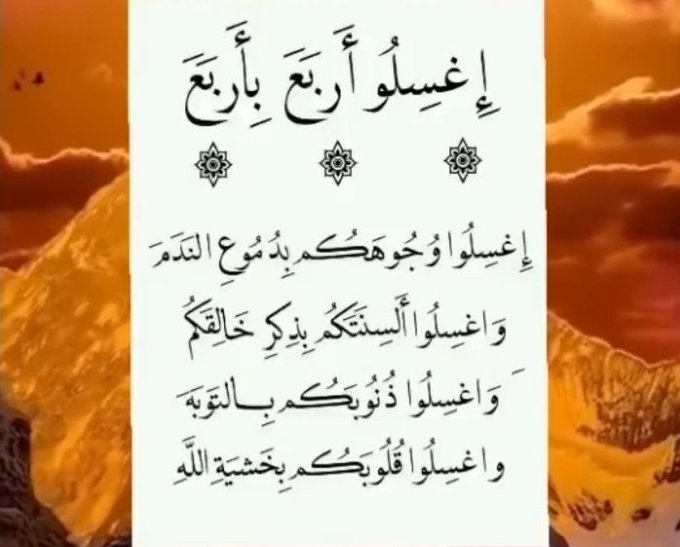 إِغسِلُو أَربَعَ بِأَربَعَ
إِغسِلُوا وُجُوهَكُم بِدُمُوعِ النَدَمَ
وَاغسِلُوا أَلسِنَتَكُم بِذِكرِ خَالِقَكُم
وَاغسِلُوا ذُنُوبَكُم بِالتَوبَةَ
واغسِلُوا قُلُوبَكُم بِخَشيَةِ اللَّهِ